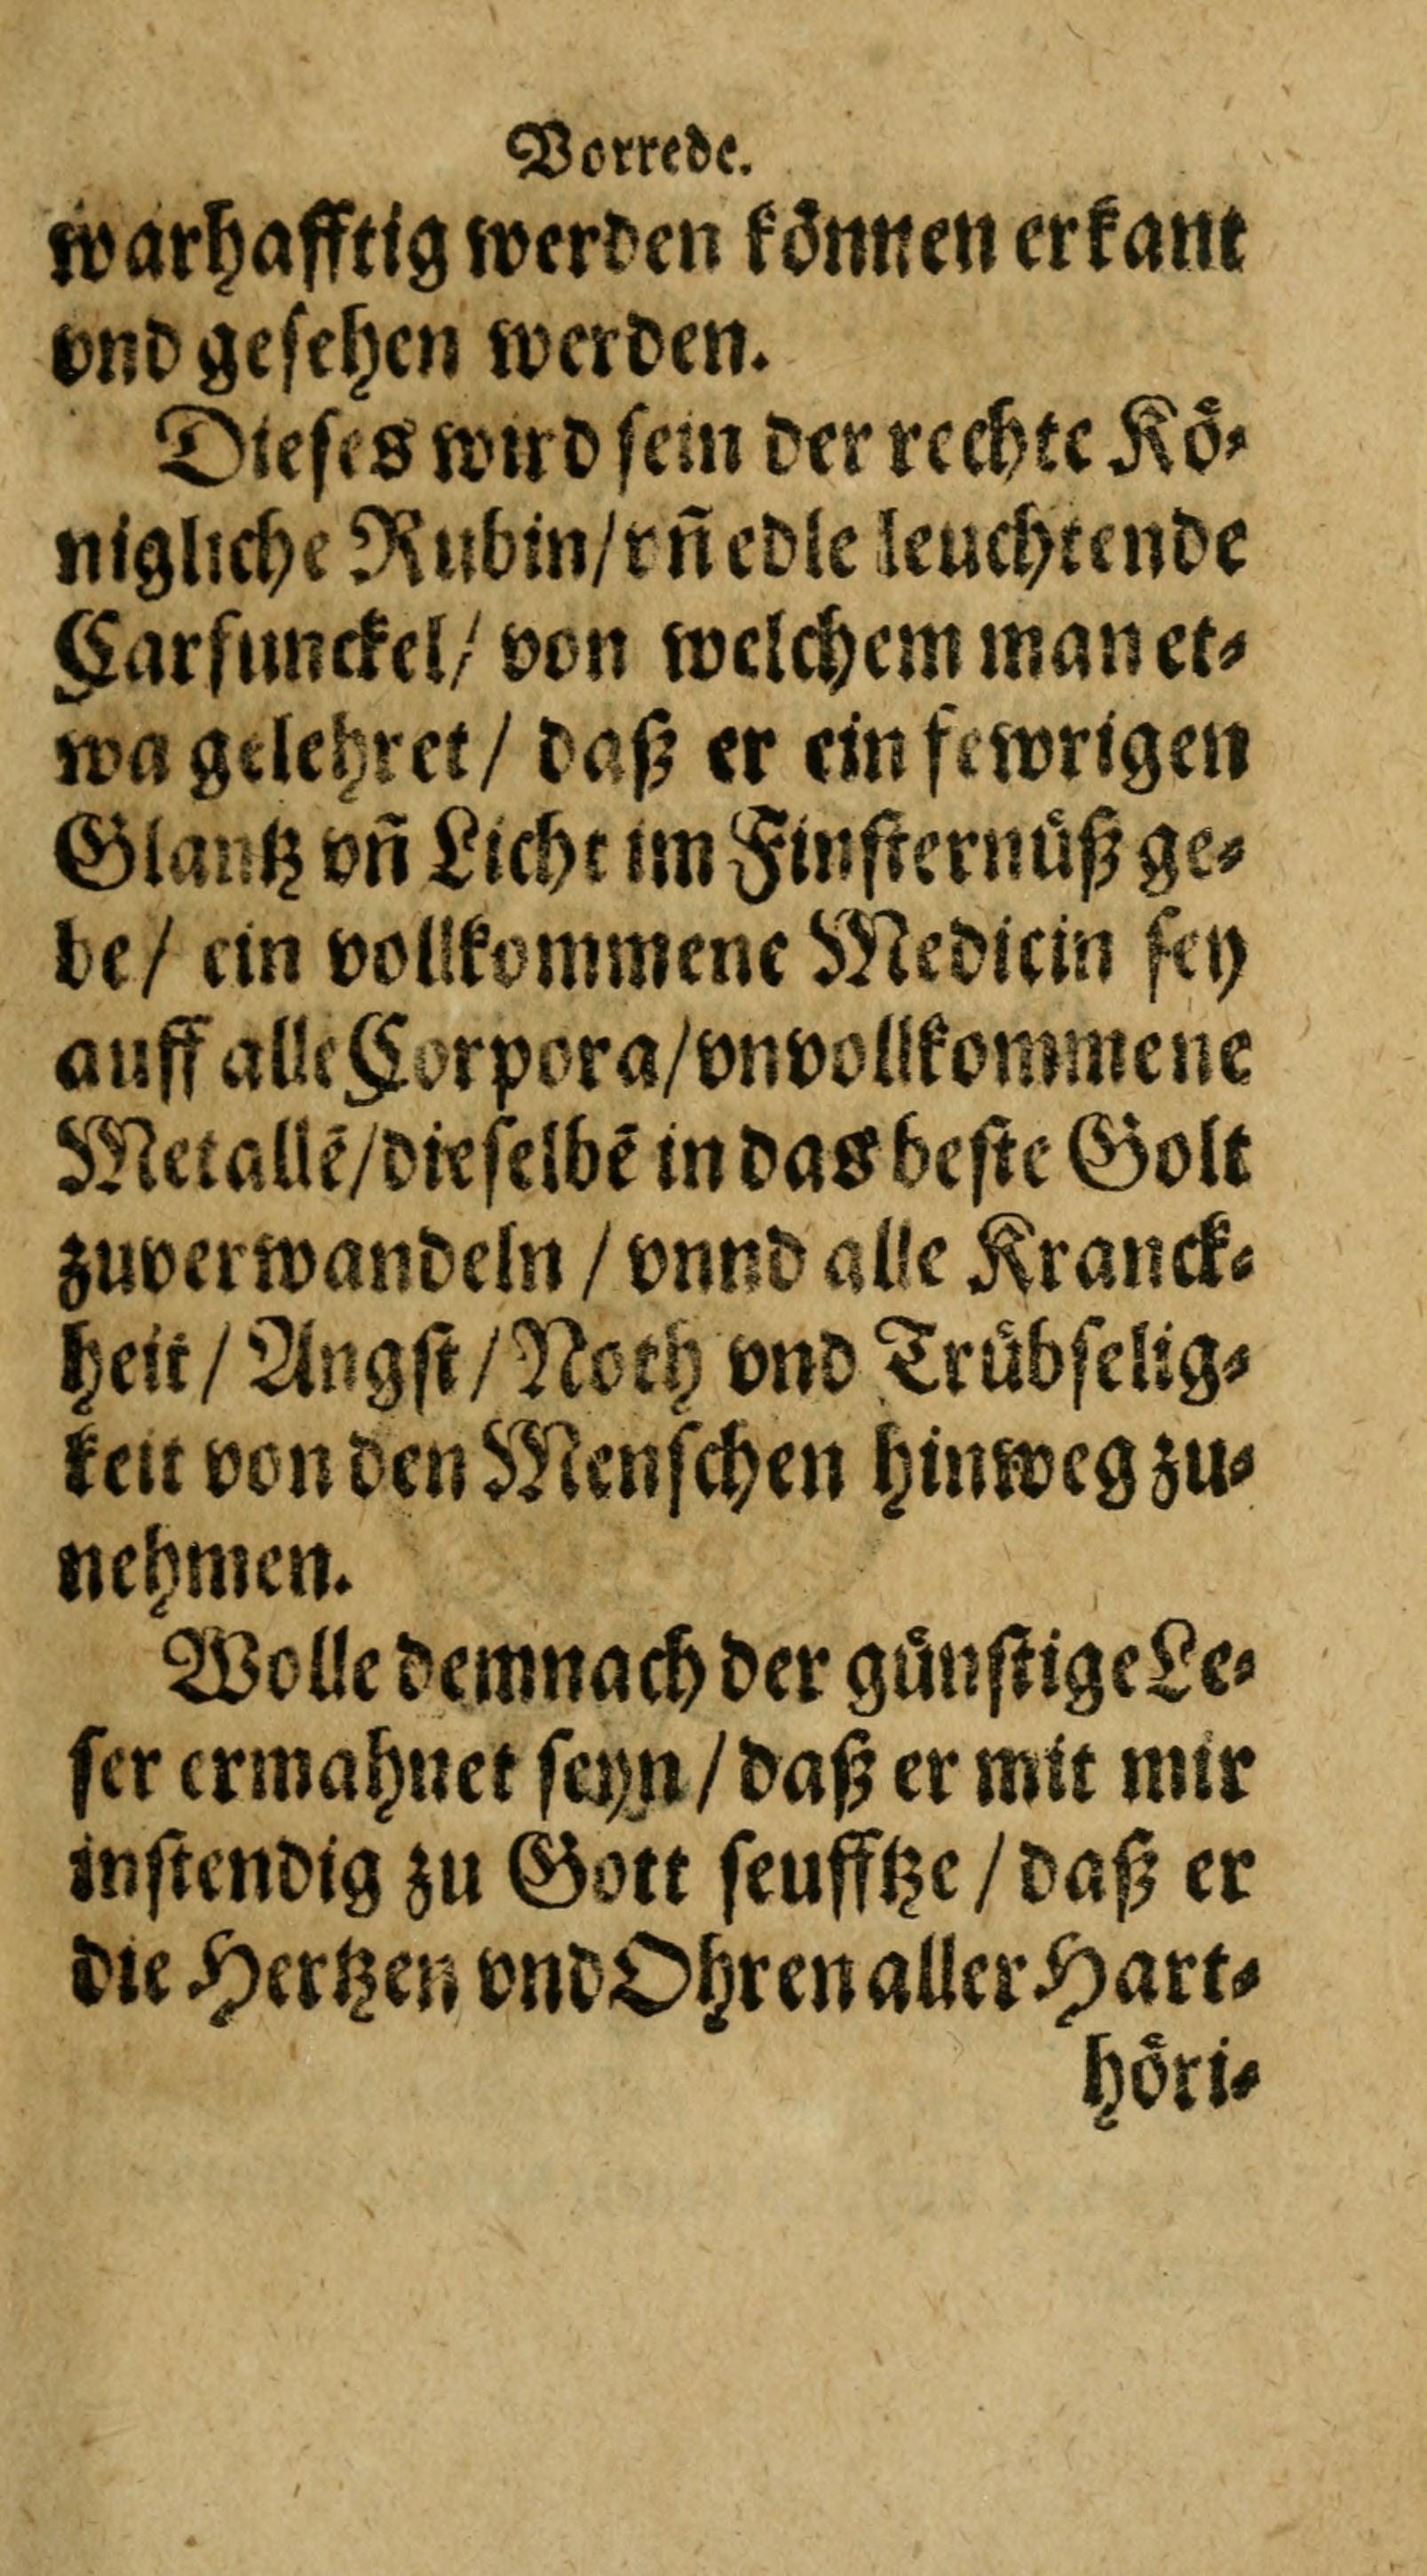 Vorrede.
warhafftig werden können erkant
vnd gesehen werden.
Dieses wird sein der rechte Kö-
nigliche Rubin/vñ edle leuchtende
Carfunckel/ von welchem man et-
wa gelehret/ daß er ein fewrigen
Glantz vñ Licht im Finsternüß ge-
be/ ein vollkommene Medicin sey
auff alle Corpora/vnvollkommene
Metallē/dieselbē in das beste Golt
zuverwandeln / vnnd alle Kranck-
heit/ Angst/Noth vnd Trübselig-
keit von den Menschen hinweg zu-
nehmen.
Wolle demnach der günstige Le-
ser ermahnet seyn/daß er mit mir
instendig zu Gott seufftze/daß er
die Hertzen vnd Ohren aller Hart-
höri-